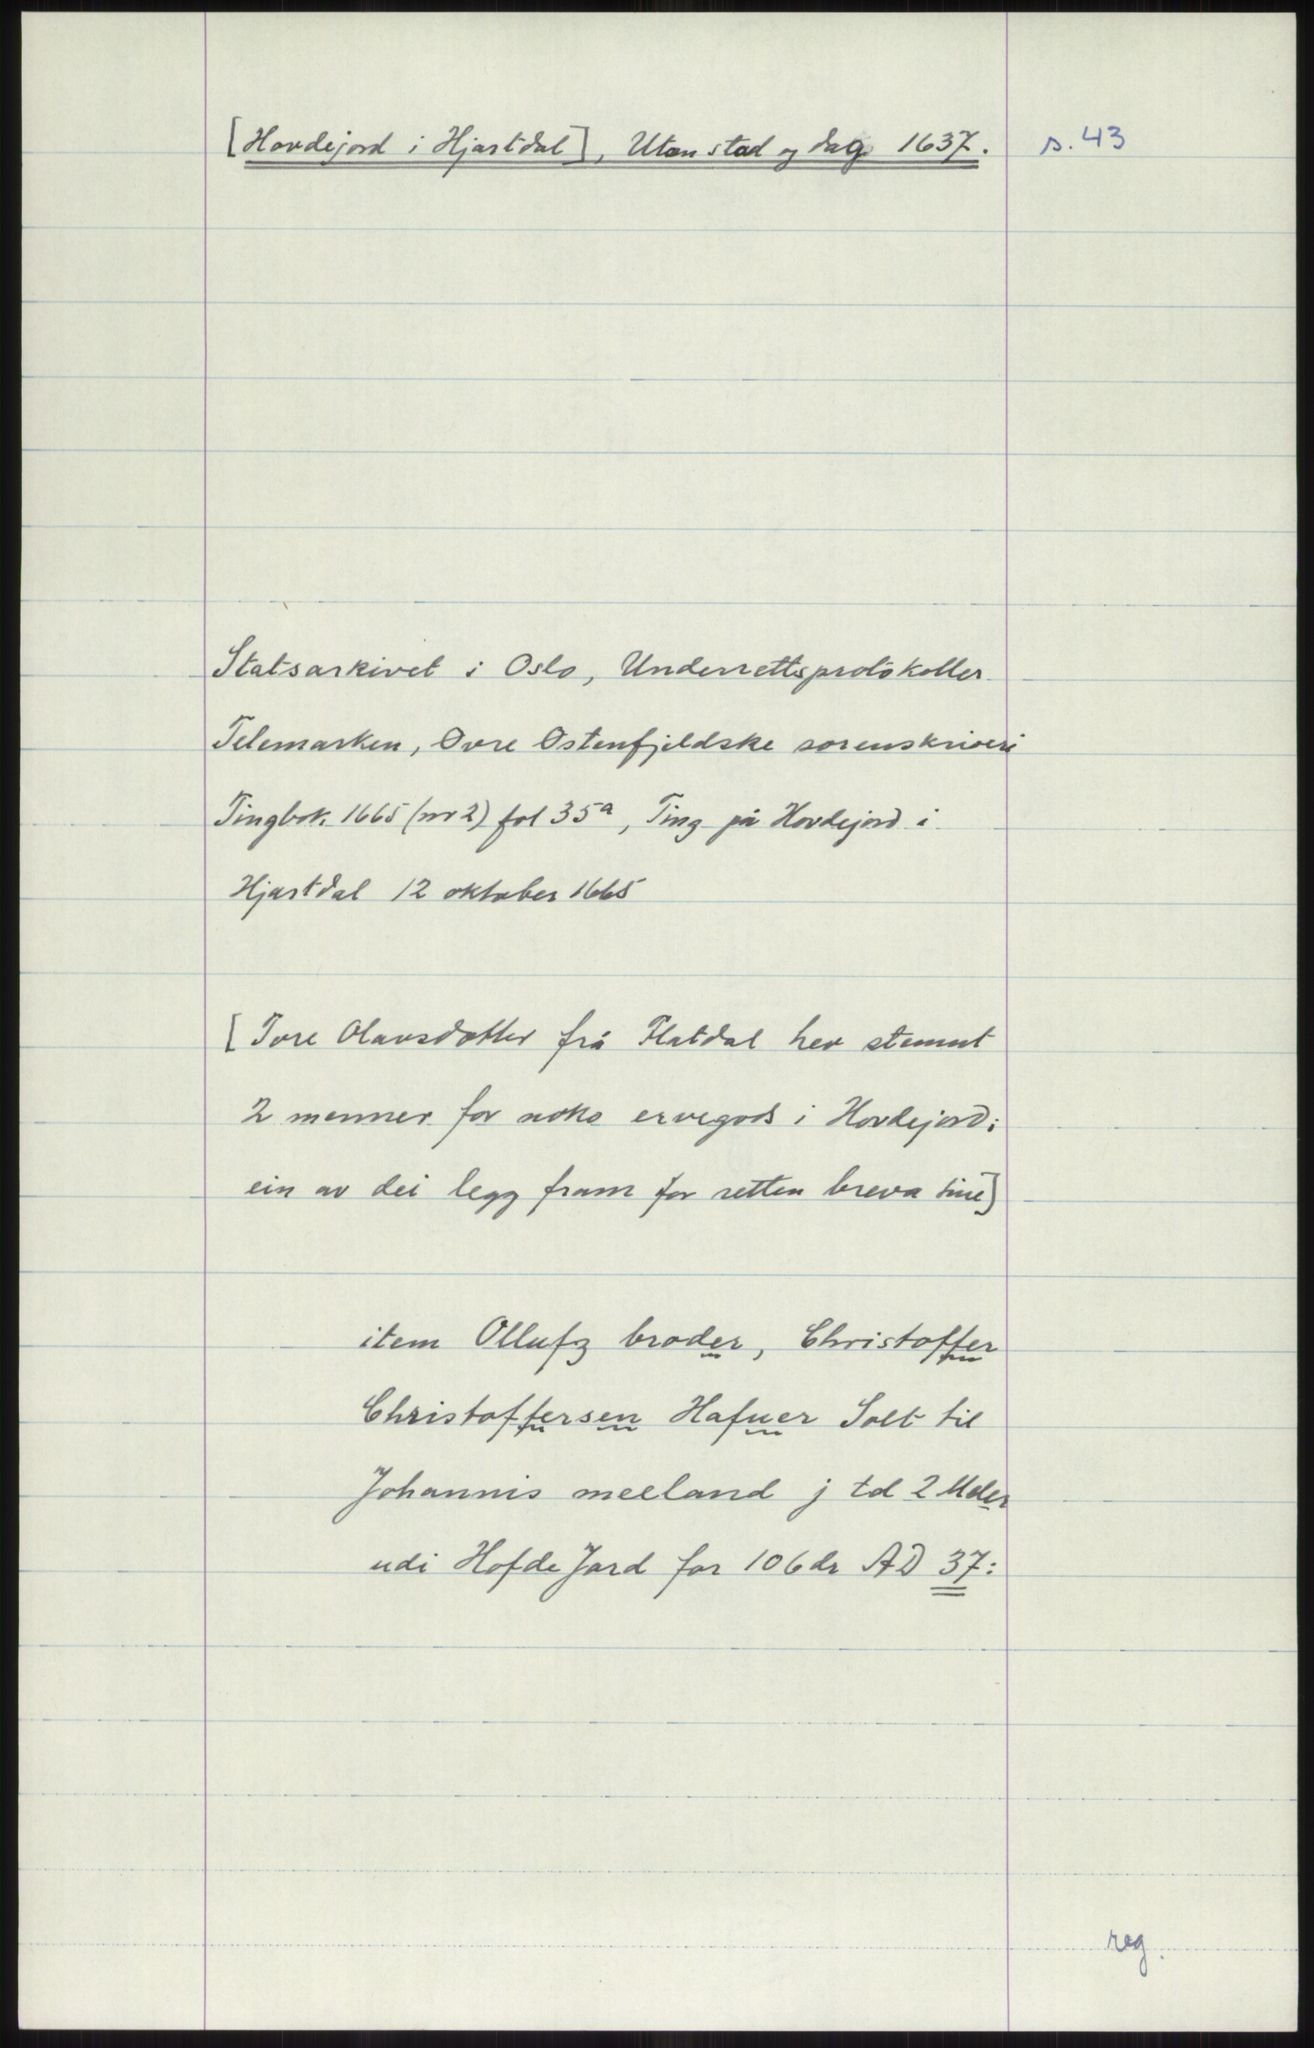 [Hovdejord i Hjartdal], Utan stad og dag 1637. s. 43
Statsarkivet i Oslo, Underrettsprotokoller
Telemarken, Øvre Østenfjeldske sorenskriveri
Tingbok 1665 (nr 2) fol 35a, Ting på Hovdejord i
Hjartdal 12 oktober 1665
[Tore Olavsdotter frå Flatdal hev stemnt
2 menner for noko ervegods i Hovdejord;
ein av dei legg fram for retten breva sine]
item Ollufz broder, Christoffer
Christoffersen Hafuer Solt til
Johannis meeland j td 2 Meler
udi Hofde Jord for 106 dr AD 37:
reg.